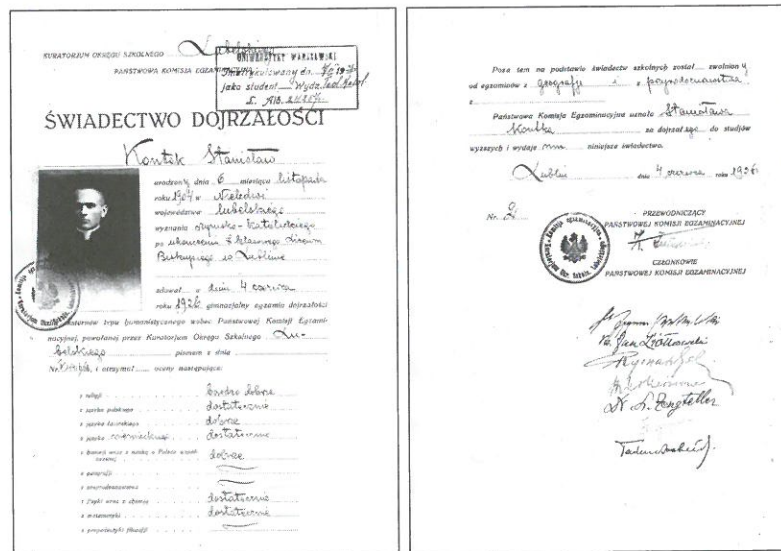 KURATORJUM OKRĘGU SZKOLNEGO Lubelskiego
PAŃSTWOWA KOMISJA EGZAMINACYJNA
UNIWERSYTET WARSZAWSKI
Imatrykulowany dn. 19
jako student Wydz. Teol. Katol.
ŚWIADECTWO DOJRZAŁOŚCI
Kontek Stanisław
urodzony dnia 6 miesiąca listopada
roku 1904 w Nieledwi
województwa lubelskiego
wyznania rzymsko-katolickiego
po ukończeniu 8 klasowego Liceum
Biskupiego w Lublinie
zdawał w dniu 4 czerwca
roku 1926 gimnazjalny egzamin dojrzałości
eksternów typu humanistycznego wobec Państwowej Komisji Egzami-
nacyjnej, powołanej przez Kuratorjum Okręgu Szkolnego Lu-
belskiego pismem z dnia
Nr. i otrzymał oceny następujące:
z religji bardzo dobrze
z języka polskiego dostatecznie
z języka łacińskiego dobrze
z języka niemieckiego dostatecznie
z historji wraz z nauką o Polsce współ-
czesnej dobrze
z geografji
z przyrodoznawstwa
z fizyki wraz z chemją dostatecznie
z matematyki dostatecznie
z propedeutyki filozofji
Poza tem na podstawie świadectw szkolnych został zwolniony
od egzaminów z geografji i z przyrodoznawstwa
z
Państwowa Komisja Egzaminacyjna uznała Stanisława
Kontka za dojrzałego do studjów
wyższych i wydaje mu niniejsze świadectwo.
Lublin dnia 4 czerwca roku 1926
Nr. 2
PRZEWODNICZĄCY
PAŃSTWOWEJ KOMISJI EGZAMINACYJNEJ
CZŁONKOWIE
PAŃSTWOWEJ KOMISJI EGZAMINACYJNEJ
Ks. Jan Ziółkowski